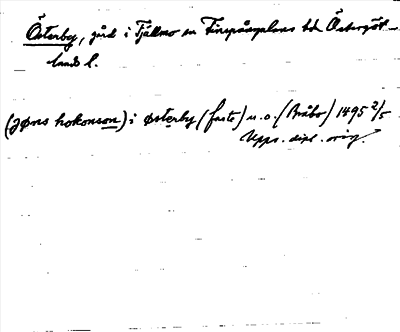 Österby, gård i Tjällmo sn Finspångaläns hd Östergöt-
lands l.
(jøns hokonson) i østerby (faste) u.o. (Bråbo) 1495 2/5
Upps. dipl. orig.